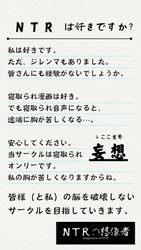 NTR は好きですか?
私は好きです。
ただ、ジレンマもありました。
皆さんにも経験がないでしょうか。
寝取られ漫画は好き。
でも寝取られ音声になると、
途端に胸が苦しくなる…。
安心してください。
↓ここ重要
当サークルは寝取られ妄想
オンリーです。
私の胸が苦しくなりますからね。
皆様(と私)の脳を破壊しない
サークルを目指していきます。
NTRの想像者